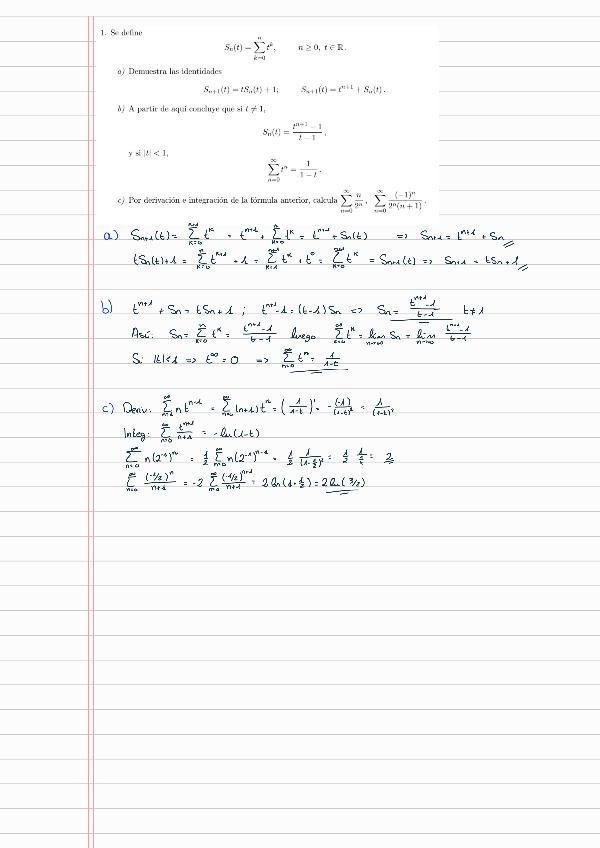 1. Se define
Sₙ(t) = ∑_{k=0}^{n} tᵏ, n ≥ 0, t ∈ ℝ.
a) Demuestra las identidades
Sₙ₊₁(t) = tSₙ(t) + 1; Sₙ₊₁(t) = tⁿ⁺¹ + Sₙ(t).
b) A partir de aquí concluye que si t ≠ 1,
Sₙ(t) = (tⁿ⁺¹ − 1)/(t − 1),
y si |t| < 1,
∑_{n=0}^{∞} tⁿ = 1/(1 − t).
c) Por derivación e integración de la fórmula anterior, calcula ∑_{n=0}^{∞} n/2ⁿ, ∑_{n=0}^{∞} (−1)ⁿ/(2ⁿ(n + 1)).
a) Sₙ₊₁(t) = ∑_{k=0}^{n+1} tᵏ = tⁿ⁺¹ + ∑_{k=0}^{n} tᵏ = tⁿ⁺¹ + Sₙ(t) => Sₙ₊₁ = tⁿ⁺¹ + Sₙ
tSₙ(t)+1 = ∑_{k=0}^{n} tᵏ⁺¹ + 1 = ∑_{k=1}^{n+1} tᵏ + t⁰ = ∑_{k=0}^{n+1} tᵏ = Sₙ₊₁(t) => Sₙ₊₁ = tSₙ+1
b) tⁿ⁺¹ + Sₙ = tSₙ+1 ; tⁿ⁺¹-1 = (t-1)Sₙ => Sₙ = (tⁿ⁺¹-1)/(t-1) t≠1
Así: Sₙ = ∑_{k=0}^{n} tᵏ = (tⁿ⁺¹-1)/(t-1) luego ∑_{k=0}^{∞} tᵏ = lím_{n→∞} Sₙ = lím_{n→∞} (tⁿ⁺¹-1)/(t-1)
Si |t|<1 => t^∞ = 0 => ∑_{n=0}^{∞} tⁿ = 1/(1-t)
c) Deriv: ∑_{n=0}^{∞} n tⁿ⁻¹ = ∑_{n=0}^{∞} (n+1)tⁿ = (1/(1-t))' = -(-1)/(1-t)² = 1/(1-t)²
Integ: ∑_{n=0}^{∞} tⁿ⁺¹/(n+1) = -ln(1-t)
∑_{n=0}^{∞} n(2⁻¹)ⁿ = 1/2 ∑_{n=0}^{∞} n(2⁻¹)ⁿ⁻¹ = 1/2 · 1/(1-1/2)² = 1/2 · 1/(1/4) = 2
∑_{n=0}^{∞} (-1/2)ⁿ/(n+1) = -2 ∑_{n=0}^{∞} (-1/2)ⁿ⁺¹/(n+1) = 2 ln(1+1/2) = 2 ln(3/2)